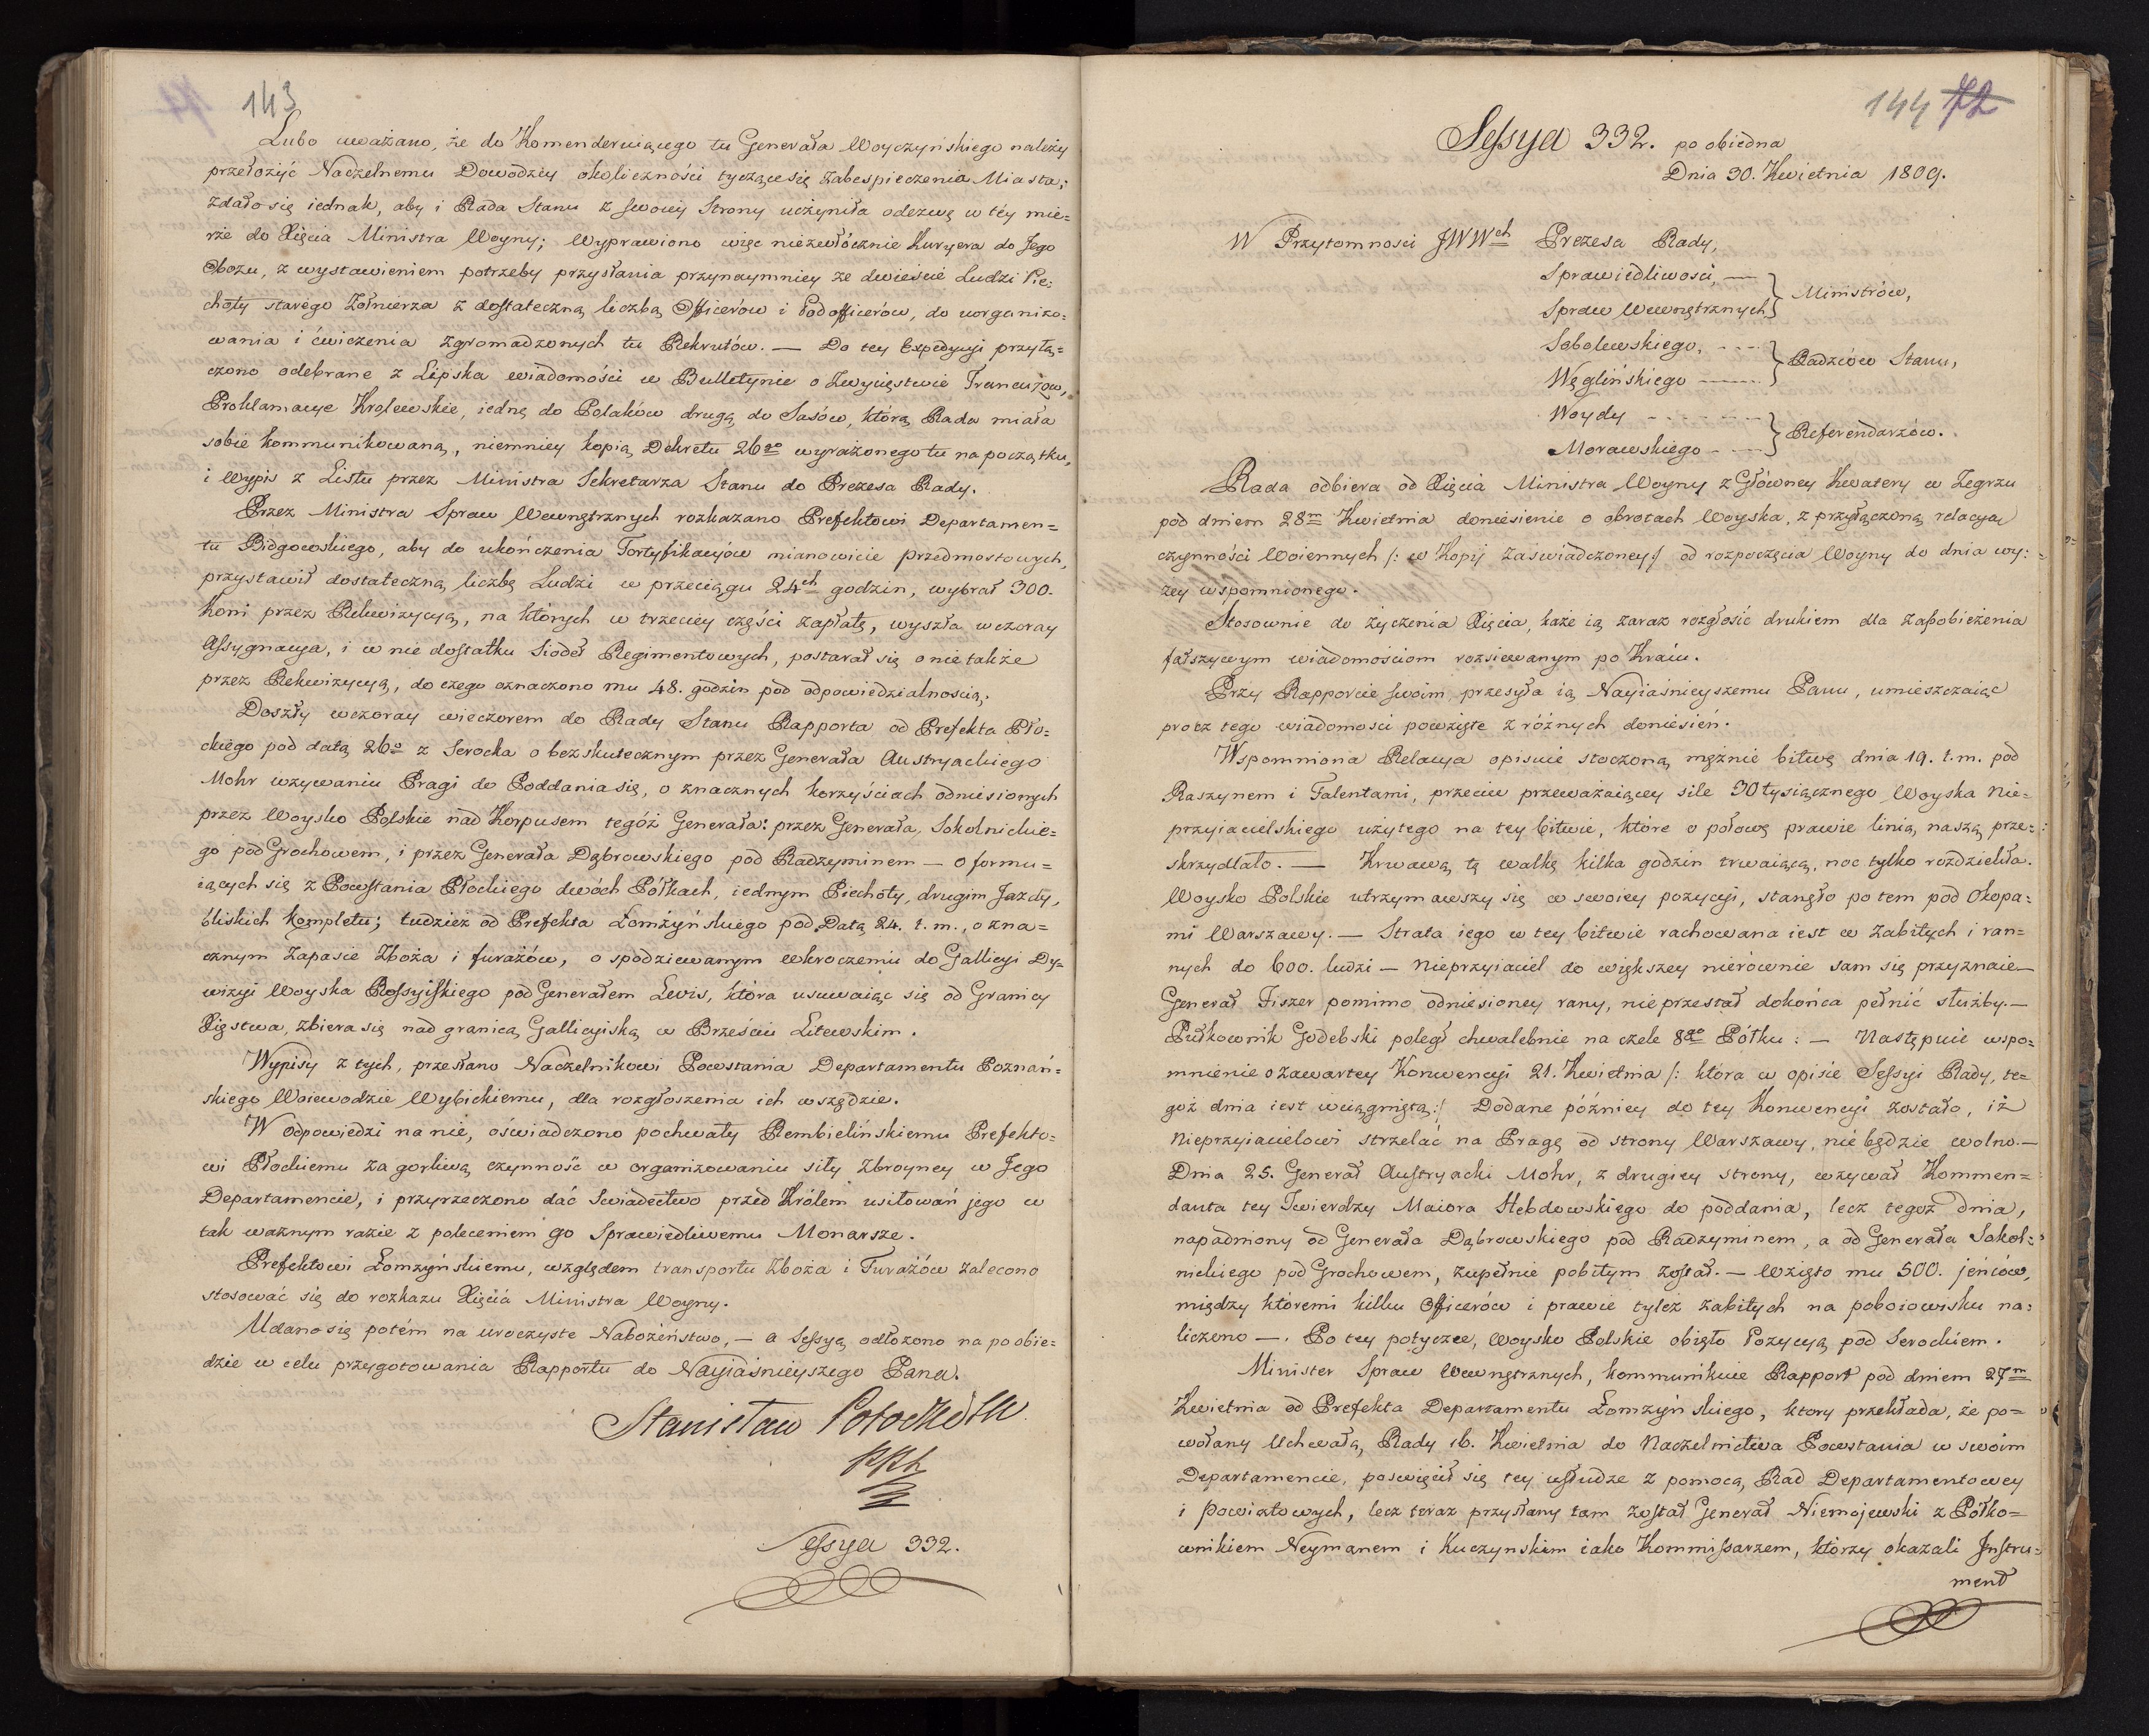 143
Lubo uważano, że do Komenderuiącego tu Generała Woyczyńskiego należy
przełożyć Naczelnemu Dowodzcy okoliczności tyczące się zabespieczenia Miasta;
zdało się iednak, aby i Rada Stanu z swoiey Strony uczyniła odezwę w téy mie=
rze do Xięcia Ministra Woyny; Wyprawiono więc niezwłócznie Kuryera do Jego
Obozu, z wystawieniem potrzeby przysłania przynaymniey ze dwieście Ludzi Pie:
choty starego Żołnierza z dostateczną liczbą Officerów i Podofficerów, do uorganizo:
wania i ćwiczenia zgromadzonych tu Rekrutów. — Do tey Expedycyi przyłą=
czono odebrane z Lipska wiadomości w Bulletynie o Zwycięstwie Francuzow,
Proklamacye Krolewskie, iedną do Polaków drugą do Sasów, którą Rada miała
sobie kommunikowaną, niemniey kopią Dekretu 26go wyrażonego tu na początku,
i Wypis z Listu przez Ministra Sekretarza Stanu do Prezesa Rady.
Przez Ministra Spraw Wewnętrznych rozkazano Prefektowi Departamen=
tu Bidgowskiego, aby do ukończenia Fortyfikacyów mianowicie przedmostowych,
przystawił dostateczną liczbę Ludzi w przeciągu 24ch godzin, wybrał 300.
Koni przez Rekwizycyą, na których w trzeciey części zapłatę, wyszła wczoray
Assygnacya, i w nie dostatku Siodeł Regimentowych, postarał się o nie także
przez Rekwizycyą, do czego oznaczono mu 48. godzin pod odpowiedzialnoscią.
Doszły wczoray wieczorem do Rady Stanu Rapporta od Prefekta Pło:
ckiego pod datą 26o z Serocka o bezskutecznym przez Generała Austryackiego
Mohr wzywaniu Pragi do Poddania się, o znacznych korzyściach odniesionych
przez Woysko Polskie nad Korpusem tegóż Generała: przez Generała Sokolnickie=
go pod Grochowem, i przez Generała Dąbrowskiego pod Radzyminem — o formu=
iących się z Powstania Płockiego dwóch Półkach, iednym Piechoty, drugim Jazdy,
bliskich kompletu; tudzież od Prefekta Łomżyńskiego pod Datą 24. t. m., o zna=
cznym zapasie Zboża i furażów, o spodziewanym wkroczeniu do Gallicyi Dy=
wizyi Woyska Rossyiskiego pod Generałem Lewis, która usuwaiąc się od Granicy
Xięstwa, zbiera się nad granicą Gallicyiską w Brześciu Litewskim.
Wypisy z tych, przesłano Naczelnikowi Powstania Departamentu Poznań=
skiego Woiewodzie Wybickiemu, dla rozgłoszenia ich wszędzie.
W odpowiedzi na nie, oświadczono pochwały Rembielińskiemu Prefekto=
wi Płockiemu za gorliwą czynność w organizowaniu siły zbroyney w Jego
Departamencie, i przyrzeczono dać Swiadectwo przed Królem usiłowań jego w
tak ważnym razie z poleceniem go Sprawiedliwemu Monarsze.
Prefektowi Łomżyńskiemu, względem transportu Zboża i Furażów zalecono
stosować się do rozkazu Xięcia Ministra Woyny.
Udano się potém na uroczyste Nabożeństwo, — a Sessyą odłożono na po obie=
dzie w celu przygotowania Rapportu do Nayiaśnieyszego Pana.
Stanisław Potocki
Sessya 332.
144 72
Sessya 332. po obiedna
Dnia 30. Kwietnia 1809.
W Przytomnosci JWWch Prezesa Rady,
Sprawiedliwosci, —
Spraw Wewnętrznych } Ministrów,
Sobolewskiego, - - -
Węglińskiego ——— } Radzców Stanu,
Woydy - - - - - - -
Morawskiego - - — } Referendarzów.
Rada odbiera od Xięcia Ministra Woyny z Główney Kwatery w Zegrzu
pod dniem 28m Kwietnia doniesienie o obrotach Woyska, z przyłączoną relacyą
czynności Woiennych /: w Kopij zaświadczoney:/ od rozpoczęcia Woyny do dnia wy:
żey wspomnionego.
Stosownie do życzenia Xięcia, każe ią zaraz rozgłosić drukiem dla zapobieżenia
fałszywym wiadomościom rozsiewanym po Kraiu.
Przy Rapporcie swoim przesyła ią Nayiaśnieyszemu Panu, umieszczaiąc
procz tego wiadomości powzięte z różnych doniesień.
Wspomniona Relacya opisuie stoczoną mężnie bitwę dnia 19. t. m. pod
Raszynem i Falentami, przeciw przeważaiącey sile 30tysiącznego Woyska Nie=
przyiacielskiego użytego na tey bitwie, które o połowę prawie linią naszą prze:
skrzydlało. — Krwawą tę walkę kilka godzin trwaiącą, noc tylko rozdzieliła.
Woysko Polskie utrzymawszy się w swoiey pozycyi, stanęło po tem pod Okopa:
mi Warszawy. — Strata iego w tey bitwie rachowana iest w zabitych i ran=
nych do 600. ludzi — Nieprzyiaciel do większey nierównie sam się przyznaie —
Generał Fiszer pomimo odniesioney rany, nie przestał do końca pełnić służby. —
Pułkownik Godebski poległ chwalebnie na czele 8go Półku: — Następuie wspo=
mnienie o zawartey Konwencyi 21. Kwietnia /: która w opisie Sessyi Rady, te=
goż dnia iest wciągnięta:/ Dodane późniey do tey Konwencyi zostało, iż
Nieprzyiacielowi strzelać na Pragę od strony Warszawy, nie będzie wolno. —
Dnia 25. Generał Austryacki Mohr, z drugiey strony, wzywał Kommen=
danta tey Twierdzy Maiora Hebdowskiego do poddania, lecz tegoż dnia,
napadniony od Generała Dąbrowskiego pod Radzyminem, a od Generała Sokol=
nickiego pod Grochowem, zupełnie pobitym został. — Wzięto mu 500. jeńców,
między któremi kilku Officerów i prawie tyleż zabitych na poboiowisku na:
liczono —. Po tey potyczce, Woysko Polskie obięło Pozycyą pod Serockiem.
Minister Spraw Wewnętrznych, kommunikuie Rapport pod dniem 27m
Kwietnia od Prefekta Departamentu Łomżyńskiego, ktory przekłada, że po=
wołany Uchwałą Rady 16. Kwietnia do Naczelnictwa Powstania w swoim
Departamencie, poswięcił się tey usłudze z pomocą Rad Departamentowey
i Powiatowych, lecz teraz przysłany tam został Generał Niemojewski z Półko=
wnikiem Neymanem i Kuczynskim iako Kommissarzem, którzy okazali Instru=
ment